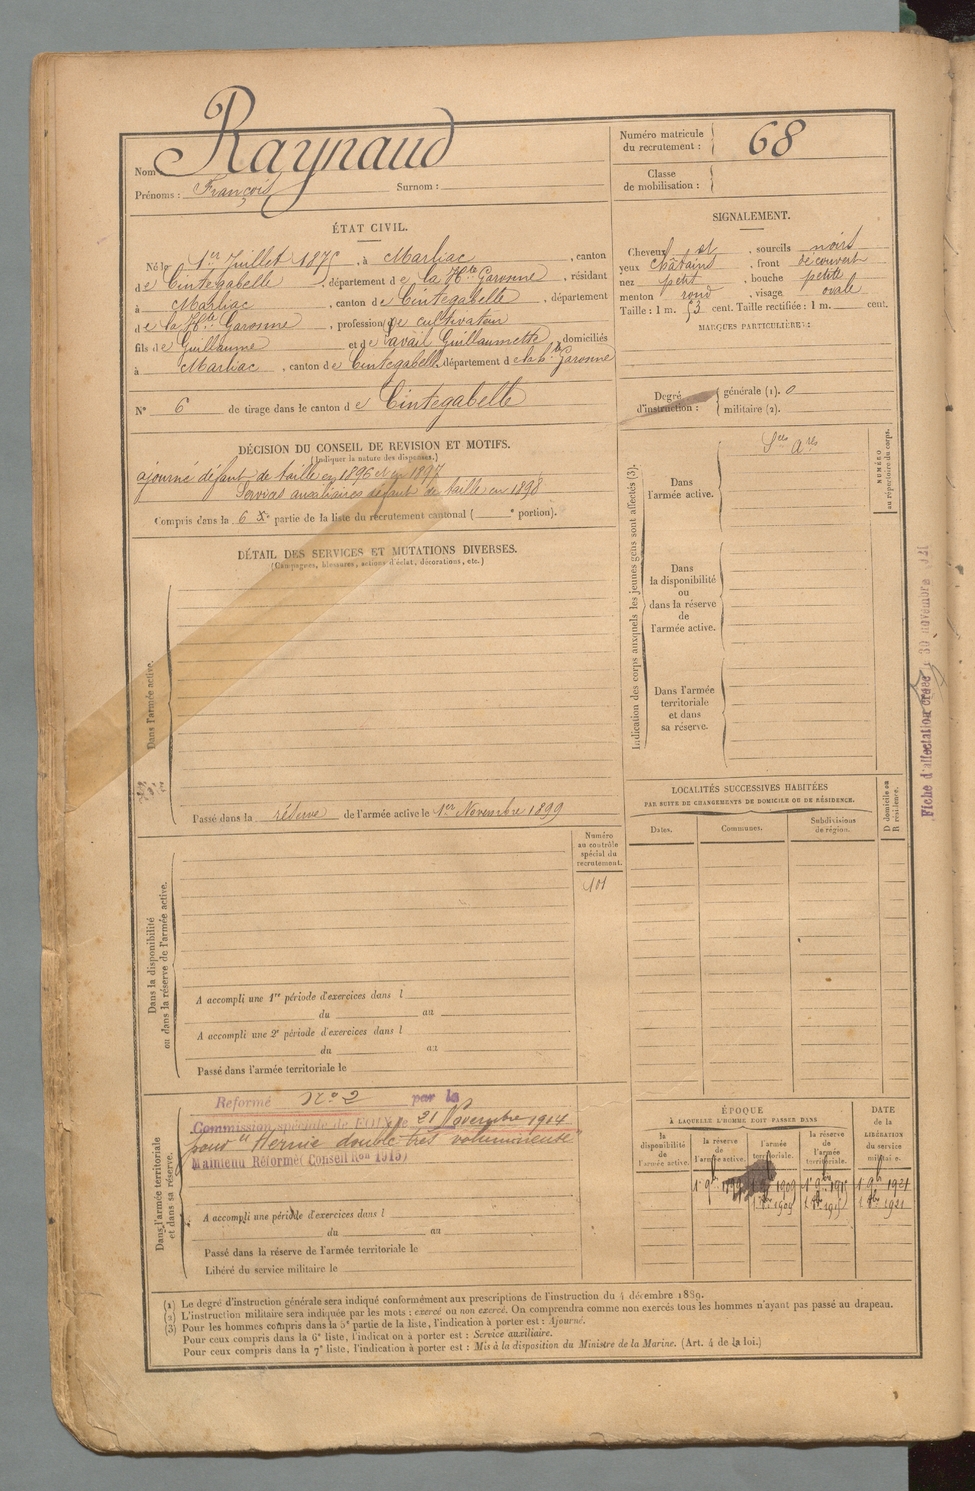 Nom Raynaud
Prénoms : François Surnom :
Numéro matricule du recrutement : 68
Classe de mobilisation :
ÉTAT CIVIL.
Né le 1er Juillet 1875, à Marliac, canton
de Cintegabelle, département de la Hte Garonne, résidant
à Marliac, canton de Cintegabelle, département
de la Hte Garonne, profession de cultivateur
fils de Guillaume et de Guillaumette, domiciliés
à Marliac, canton de Cintegabelle, département de la Hte Garonne
N° 6 de tirage dans le canton de Cintegabelle
SIGNALEMENT.
Cheveux et, sourcils noirs
yeux châtains, front découvert
nez petit, bouche petite
menton rond, visage ovale
Taille : 1 m. 53 cent. Taille rectifiée : 1 m. cent.
MARQUES PARTICULIÈRES :
Degré d'instruction : générale (1). 0
militaire (2).
DÉCISION DU CONSEIL DE REVISION ET MOTIFS.
(Indiquer la nature des dispenses.)
ajourné défaut de taille en 1896 et en 1897
Services auxiliaires défaut de taille en 1898
Compris dans la 6 partie de la liste du recrutement cantonal ( e portion).
DÉTAIL DES SERVICES ET MUTATIONS DIVERSES.
(Campagnes, blessures, actions d'éclat, décorations, etc.)
Dans l'armée active.
Passé dans la réserve de l'armée active le 1er Novembre 1899
Indication des corps auxquels les jeunes gens sont affectés (3).
Dans l'armée active.
NUMÉRO au répertoire du corps.
Dans la disponibilité ou dans la réserve de l'armée active.
Dans l'armée territoriale et dans sa réserve.
LOCALITÉS SUCCESSIVES HABITÉES
PAR SUITE DE CHANGEMENTS DE DOMICILE OU DE RÉSIDENCE.
Dates. Communes. Subdivisions de région. D domicile ou R résidence.
Fiche d'affectation
Dans la disponibilité ou dans la réserve de l'armée active.
Numéro au contrôle spécial du recrutement.
101
A accompli une 1re période d'exercices dans l
du au
A accompli une 2e période d'exercices dans l
du au
Passé dans l'armée territoriale le
Dans l'armée territoriale et dans sa réserve.
Reformé N° 2 par la
Commission spéciale de FOIX le 21 Novembre 1914
pour "Hernie double très volumineuse"
Maintenu Réformé (Conseil Ron 1915)
A accompli une période d'exercices dans l
du au
Passé dans la réserve de l'armée territoriale le
Libéré du service militaire le
ÉPOQUE
À LAQUELLE L'HOMME DOIT PASSER DANS
la disponibilité de l'armée active. la réserve de l'armée active. l'armée territoriale. la réserve de l'armée territoriale.
DATE de la LIBÉRATION du service militaire.
1er 9bre 1899 1909 1er 9bre 1915 1er 9bre 1921
1909 1915 1921
(1) Le degré d'instruction générale sera indiqué conformément aux prescriptions de l'instruction du 4 décembre 1889.
(2) L'instruction militaire sera indiquée par les mots : exercé ou non exercé. On comprendra comme non exercés tous les hommes n'ayant pas passé au drapeau.
(3) Pour les hommes compris dans la 5e partie de la liste, l'indication à porter est : Ajourné.
Pour ceux compris dans la 6e liste, l'indication à porter est : Service auxiliaire.
Pour ceux compris dans la 7e liste, l'indication à porter est : Mis à la disposition du Ministre de la Marine. (Art. 4 de la loi.)